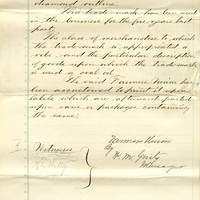 diamond outline.
This trade-mark has been used
in the business for the five years last
past.
The class of merchandise to which
the trade-mark is appropriated is
oils and the particular description
of goods upon which the trade-mark
is used is coal oil.
The said Farmers Union has
been accustomed to print it upon
labels which are afterwards pasted
upon cans or packages containing
the same.
Farmers Union
By
Manager
Witnesses